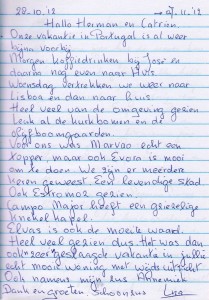 28.10.'12 → 07.11.'12
Hallo Herman en Catrien,
Onze vakantie in Portugal is al weer
bijna voorbij
Morgen koffiedrinken bij José en
daarna nog even naar Avis
Woensdag vertrekken we weer naar
Lisboa en dan naar huis.
Heel veel van de omgeving gezien
Leuk al de kurkbomen en de
olijfboomgaarden.
Voor ons was Marvao echt een
topper, maar ook Evora is mooi
om te zien. We zijn er meerdere
keren geweest Een levendige stad
Ook Estremoz gezien
Campo Major heeft een griezelige
knekelkapel.
Elvas is ook de moeite waard.
Heel veel gezien dus. Het was dan
ook zeer geslaagde vakantie in jullie
echt mooie woning met wijds uitzicht
Ook namens mijn zus Annemiek
Dank en groeten Schoonzus